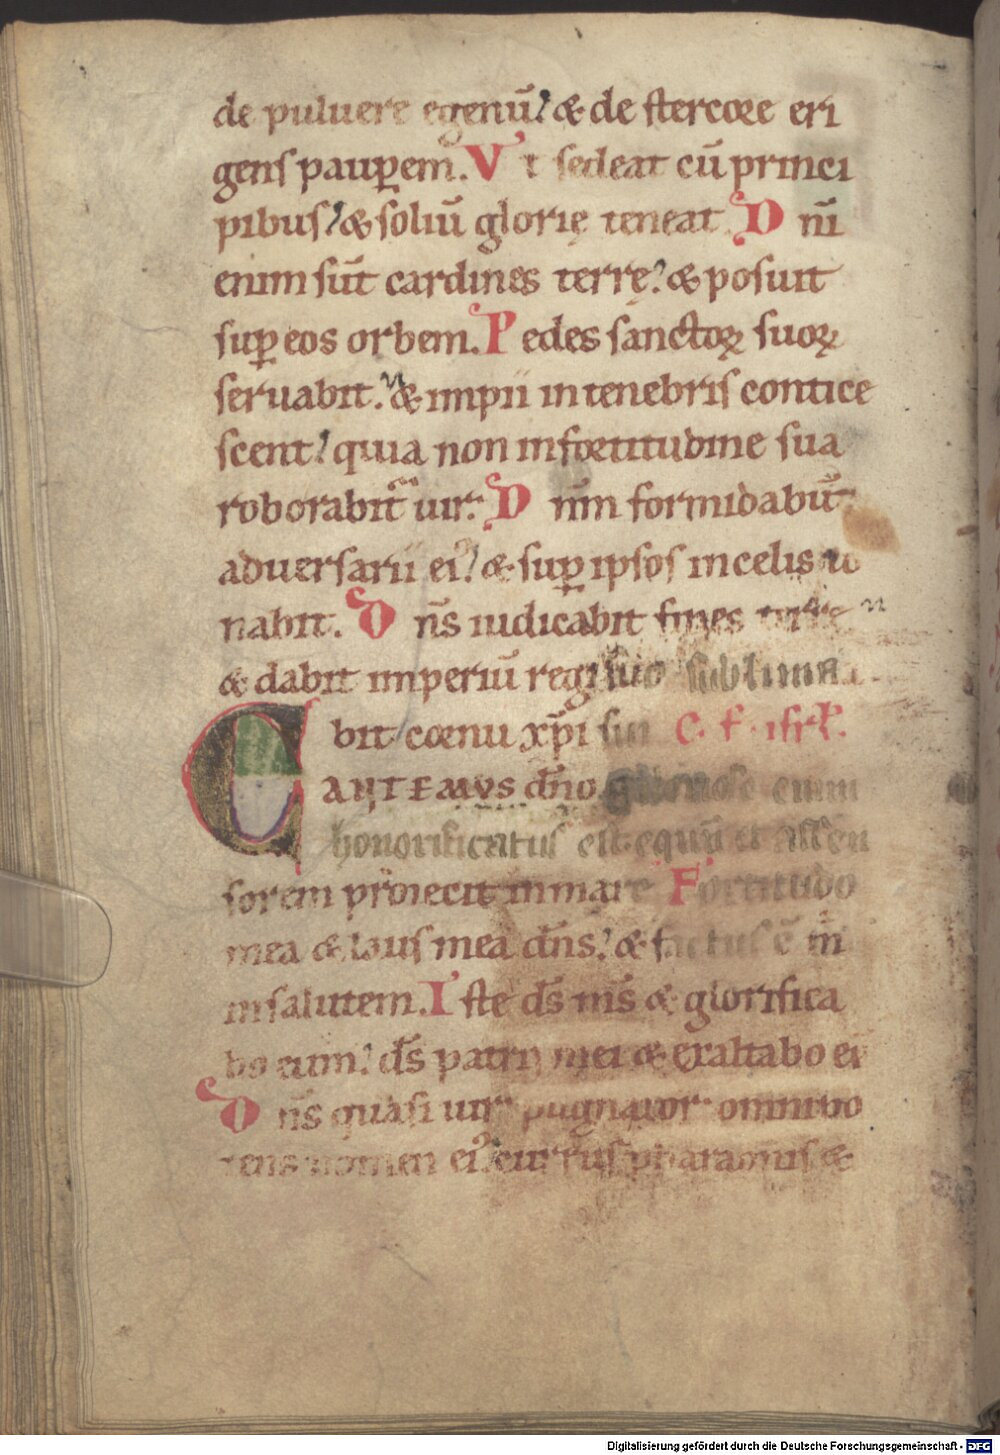 de puluere egenū? & de stercore eri
gens paup̱em. Vt sedeat cū princi
pibus? & soliū glorię teneat Dn̄i
enim sūt cardines terrę? & posuit
sup̱ eos orbem. Pedes sanctoꝝ suoꝝ
seruabit. & impii in tenebris contice
scent? quia non in fortitudine sua
roborabit᷑ uir. Dn̄m formidabūt
aduersarii ei᾽? & sup̱ ipsos in celis to
nabit. Dn̄s iudicabit fines terrę
& dabit imperiū regi suo & sublima
bit cornu xp̄i sui C. f. isrł.
CANTEMVS dn̄o gloriose enim
honorificatus est equū et ascen
sorem proiecit in mare Fortitudo
mea & laus mea dn̄s? & factus ē m̄
in salutem. Iste ds̄ ms̄ & glorifica
bo eum? ds̄ patris mei & exaltabo eū
Dn̄s quasi uir pugnator omnipo
tens nomen ei᾽ currus pharaonis &
Digitalisierung gefördert durch die Deutsche Forschungsgemeinschaft - DFG